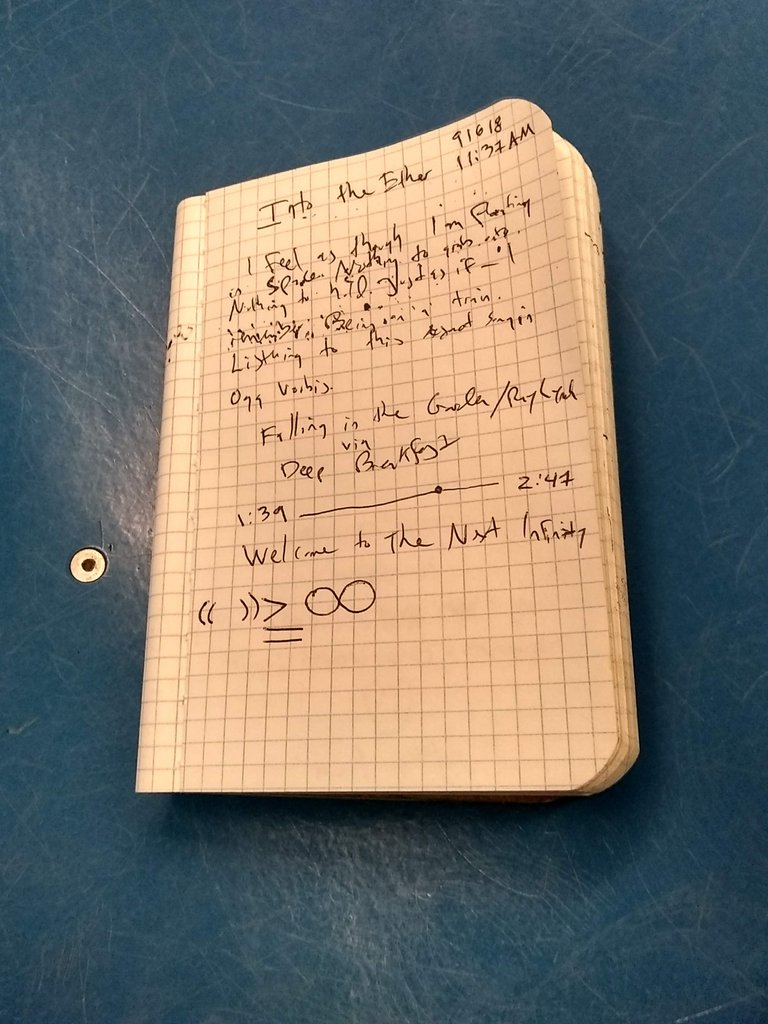 91618
11:37AM
Into the Ether
I feel as though I'm floating
in space. Nothing to grab onto.
Nothing to hold. Just as if — I
Being on a train.
Listening to this song in
Ogg Vorbis.
Falling in the Garden/
via
Deep Breakfast
1:39 2:47
Welcome to The Next Infinity
(( ))> ∞